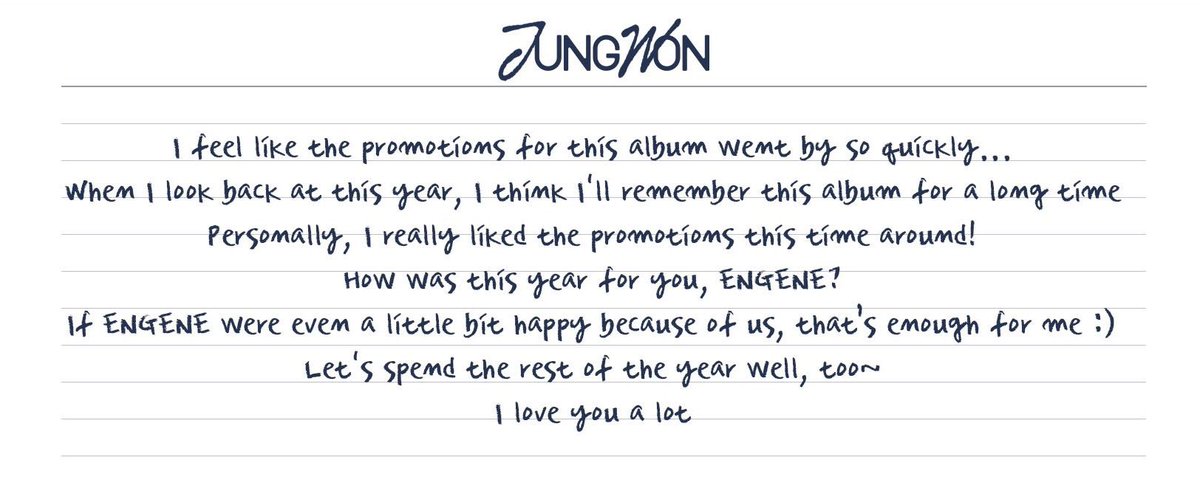 JUNGWON
I feel like the promotions for this album went by so quickly...
When I look back at this year, I think I'll remember this album for a long time
Personally, I really liked the promotions this time around!
How was this year for you, ENGENE?
If ENGENE were even a little bit happy because of us, that's enough for me :)
Let's spend the rest of the year well, too~
I love you a lot